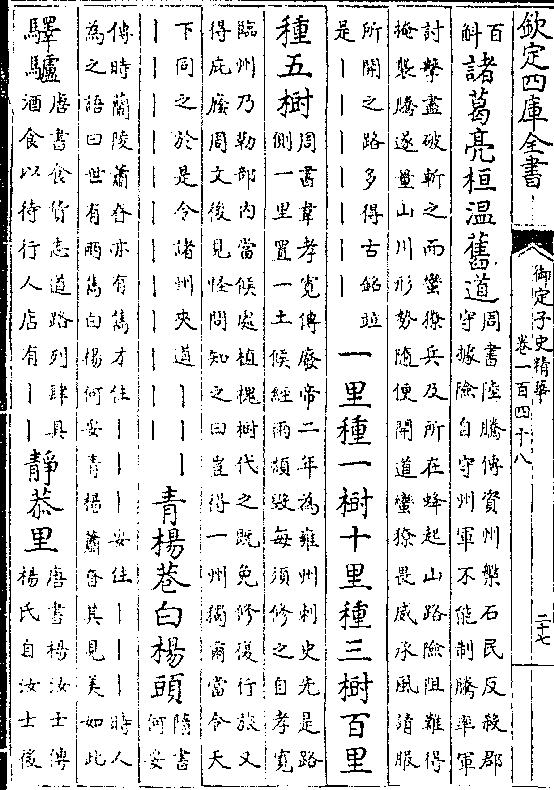 欽定四庫全書
御定子史精華
卷一百四十八
二十七
百
斛
諸葛亮桓溫舊道
周書陸騰傳資州槃石民反殺郡
守據險自守州軍不能制騰率軍
討擊盡破斬之而蠻獠兵及所在蜂起山路險阻難得
掩襲騰遂量山川形勢隨便開道蠻獠畏威承風請服
所開之路多得古銘並
是｜｜｜｜｜｜｜
一里種一樹十里種三樹百里
種五樹
周書韋孝寬傳廢帝二年為雍州刺史先是路
側一里置一土候經雨頹毀每須修之自孝寬
臨州乃勒部內當候處植槐樹代之既免修復行旅又
得庇廕周文後見怪問知之曰豈得一州獨爾當令天
下同之於是令諸州夾道｜｜｜｜
｜｜｜｜｜｜｜｜｜｜
青楊巷白楊頭
隋書
何妥
傳時蘭陵蕭眘亦有雋才住｜｜｜妥住｜｜｜時人
為之語曰世有兩雋白楊何妥青楊蕭眘其見美如此
驛驢
唐書食貨志道路列肆具
酒食以待行人店有｜｜
靜恭里
唐書楊汝士傳
楊氏自汝士後